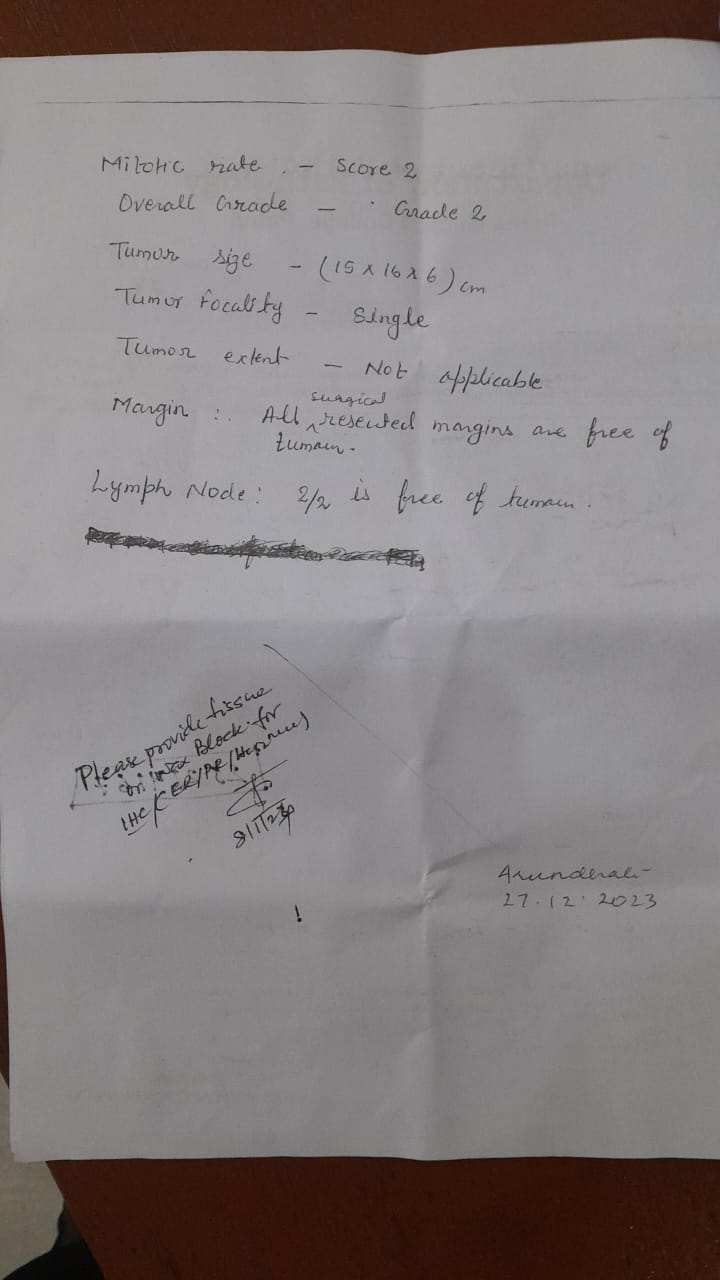 Mitotic rate . - Score 2
Overall Grade - Grade 2
Tumor size - (15 x 16 x 6) cm
Tumor Focality - Single
Tumor extent - Not applicable
Margin :. All surgical resected margins are free of
tumour.
Lymph Node: 2/2 is free of tumour.
Please provide tissue
on wax Block for
IHC (ER/PR/Her2neu)
8/1/24
Arundhati
27.12.2023
!